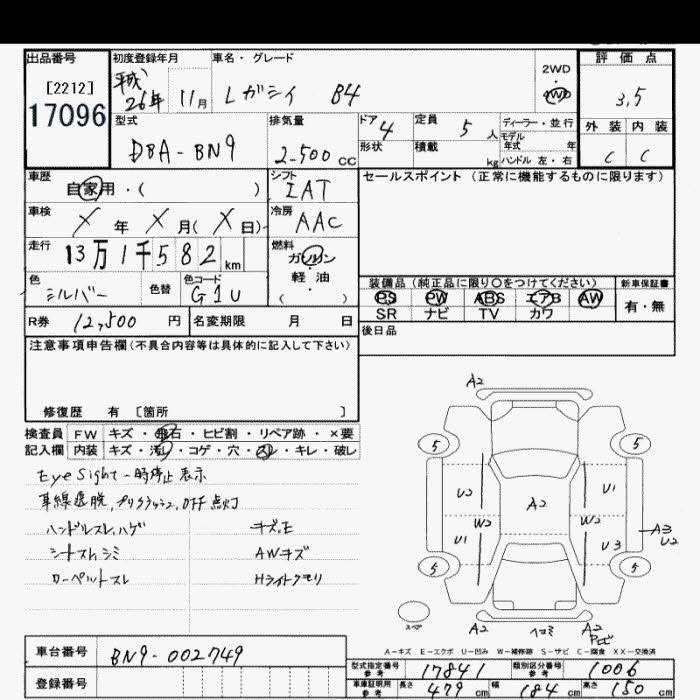 出品番号 初度登録年月 車名・グレード 評価点
[2212] 平成 26年 11月 レガシィ B4 2WD 4WD 3.5
17096
型式 排気量 ドア 4 定員 5人 ディーラー・並行 外装 内装
DBA-BN9 2.500 CC 形状 積載 kg モデル年式 年 C C
ハンドル 左・右
車歴 自家用・( ) シフト IAT セールスポイント (正常に機能するものに限ります)
車検 X年 X月(X日) 冷房 AAC
走行 13万1千582km 燃料 ガソリン・軽油 ( )
色 シルバー 色替 色コード G1U
装備品 (純正品に限り○をつけてください) 新車保証書
PS PW ABS エアB AW 有・無
SR ナビ TV カワ
R券 12,500円 名変期限 月 日 後日品
注意事項申告欄(不具合内容等は具体的に記入して下さい)
修復歴 有 〔箇所 〕
検査員 FW キズ・飛石・ヒビ割・リペア跡・×要
記入欄 内装 キズ・汚レ・コゲ・穴・スレ・キレ・破レ
EyeSight一時停止表示
車線逸脱,プリクラッシュ,OFF点灯
ハンドルスレ,ハゲ キズ,E
シートスレ,シミ AWキズ
カーペットスレ Hライトクモリ
A2
5 5
U2 U1
A2
W2 W2
U1 U3 A3 U2
5 5
スペア A2 ヨゴミ A2
A-キズ E-エクボ U-凹み W-補修跡 S-サビ C-腐食 XX-交換済
車台番号 BN9-002749
登録番号
型式指定番号 参考 17841 類別区分番号 参考 1006
車庫証明用 参考 長さ 479cm 幅 184cm 高さ 150cm